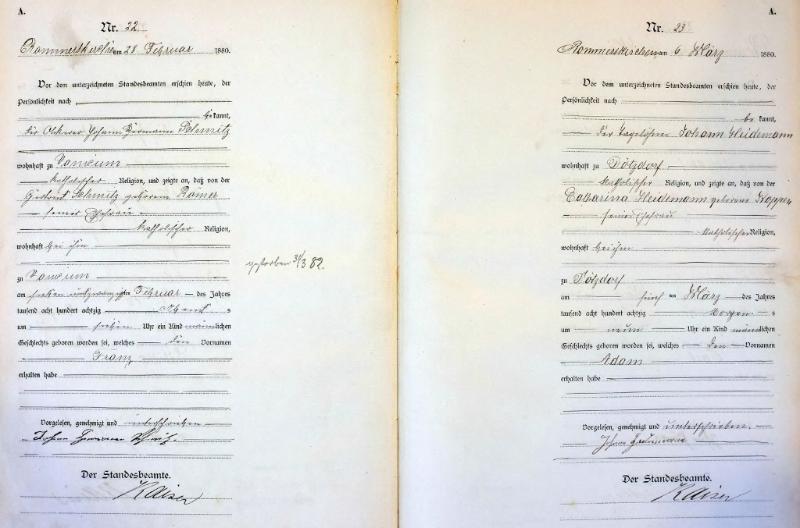 A.
Nr. 22
Rommerskirchen am 28 Februar 1880.
Vor dem unterzeichneten Standesbeamten erschien heute, der
Persönlichkeit nach
be kannt,
der Ackerer Johann Hermann Schmitz
wohnhaft zu Vanikum
katholischer Religion, und zeigte an, daß von der
Gertrud Schmitz geborenen Romer
seiner Ehefrau
katholischer Religion,
wohnhaft bei ihm
zu Vanikum
am sieben und zwanzigsten Februar des Jahres
tausend acht hundert achtzig Abends
um sieben Uhr ein Kind männlichen
Geschlechts geboren worden sei, welches den Vornamen
Franz
erhalten habe
Vorgelesen, genehmigt und unterschrieben
Johan Hermann Schmitz
Der Standesbeamte.
Kaiser
gestorben 31/3 82.
A.
Nr. 23
Rommerskirchen am 6 März 1880.
Vor dem unterzeichneten Standesbeamten erschien heute, der
Persönlichkeit nach
be kannt,
der Tagelöhner Johann Heidemann
wohnhaft zu Dötzdorf
katholischer Religion, und zeigte an, daß von der
Catharina Heidemann geborene
seiner Ehefrau
katholischer Religion,
wohnhaft bei ihm
zu Dötzdorf
am März des Jahres
tausend acht hundert achtzig Morgens
um neun Uhr ein Kind männlichen
Geschlechts geboren worden sei, welches den Vornamen
Adam
erhalten habe
Vorgelesen, genehmigt und unterschrieben.
Johan Heidemann
Der Standesbeamte.
Kaiser